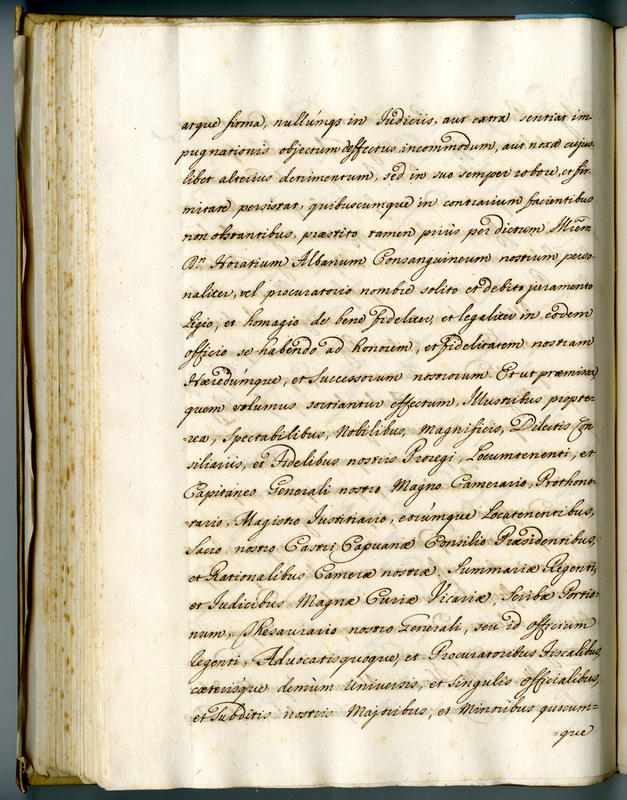 atque firma, nullúmq3 in Iudiciis, aut extra sentiat im-
pugnationis objectum deffectus, incommodum, aut noxæ cujus-
libet alterius detrimentum, sed in suo semper robore, et fir-
mitate persistat, quibuscumque in contrarium facientibus
non obstantibus, præstito tamen prius per dictum Illum
Dn Horatium Albanum Consanguineum nostrum, perso-
naliter, vel procuratorio nombre solito et debito juramento
ligio, et homagio de bene fideliter, et legaliter in eodem
officio se habendo ad honorem, et fidelitatem nostram
Hæredúmque, et Successorum nostrorum. Et ut præmissa,
quem volumus sortiantur effectum, Illustribus propte-
-rea, Spectabilibus, Nobilibus, Magnificis, Dilectis Con-
siliariis, et Fidelibus nostris Proregi, Locumtenenti, et
Capitaneo Generali nostro Magno Camerario, Prothono-
tario, Magistro Iustitiario, eorúmque Locatenentibus,
Sacro nostro Castri Capuanæ Consilio Præsidentibus,
et Rationalibus Cameræ nostræ Summariæ Regenti,
et Iudicibus Magnæ Curiæ Vicariæ, Scribæ Portio-
num, Thesaurario nostro Generali, seu id officium
Regenti, Advocatis quoque, et Procuratoribus Fiscalibus,
cæterisque demùm Universis, et Singulis officialibus,
et Subditis nostris Majoribus, et Minoribus quocum=
=que